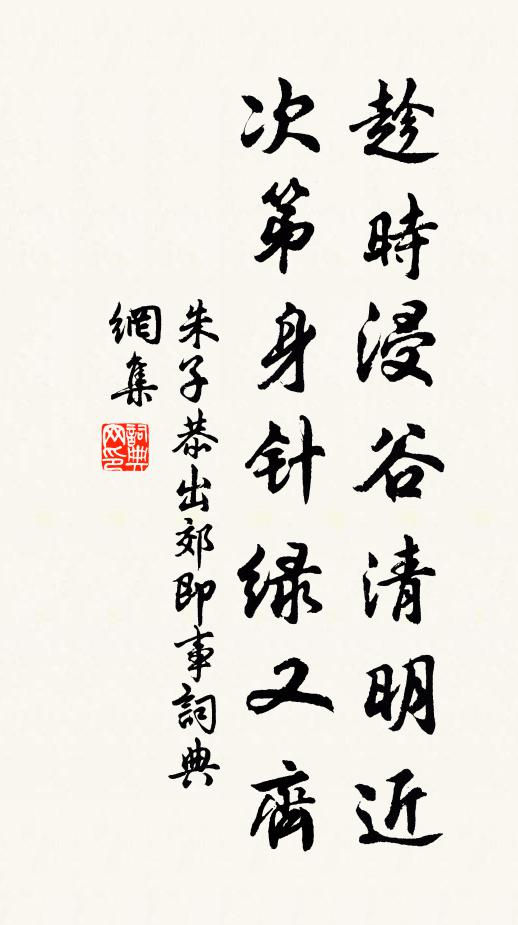 趁時浸谷清明近
次第身针绿又齊
朱子恭出郊即事詞典
網集
詞典網印